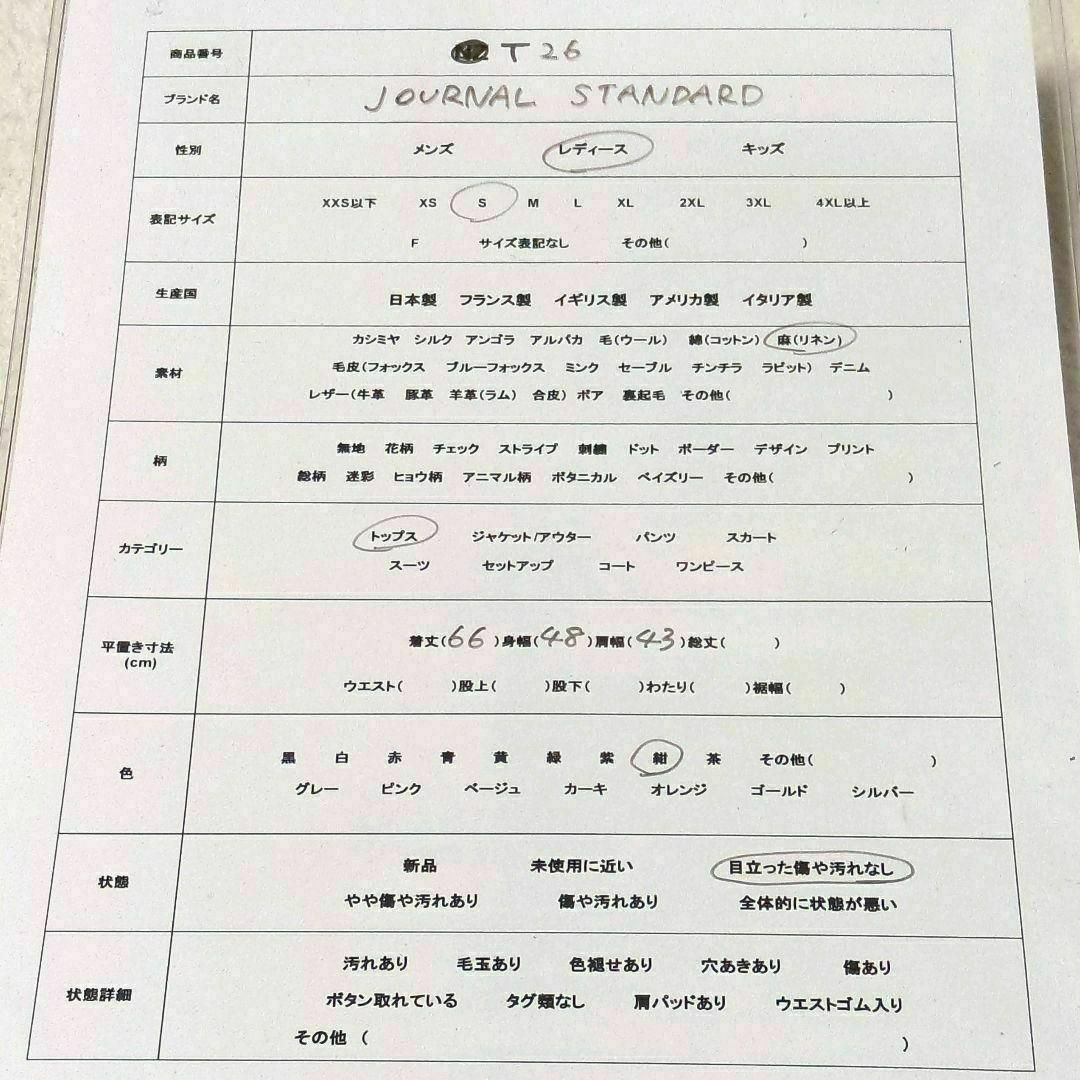 商品番号 T26
ブランド名 JOURNAL STANDARD
性別 メンズ レディース キッズ
表記サイズ XXS以下 XS S M L XL 2XL 3XL 4XL以上
F サイズ表記なし その他( )
生産国 日本製 フランス製 イギリス製 アメリカ製 イタリア製
素材 カシミヤ シルク アンゴラ アルパカ 毛(ウール) 綿(コットン) 麻(リネン)
毛皮(フォックス ブルーフォックス ミンク セーブル チンチラ ラビット) デニム
レザー(牛革 豚革 羊革(ラム) 合皮) ボア 裏起毛 その他( )
柄 無地 花柄 チェック ストライプ 刺繍 ドット ボーダー デザイン プリント
総柄 迷彩 ヒョウ柄 アニマル柄 ボタニカル ペイズリー その他( )
カテゴリー トップス ジャケット/アウター パンツ スカート
スーツ セットアップ コート ワンピース
平置き寸法 (cm) 着丈(66)身幅(48)肩幅(43)総丈( )
ウエスト( )股上( )股下( )わたり( )裾幅( )
色 黒 白 赤 青 黄 緑 紫 紺 茶 その他( )
グレー ピンク ベージュ カーキ オレンジ ゴールド シルバー
状態 新品 未使用に近い 目立った傷や汚れなし
やや傷や汚れあり 傷や汚れあり 全体的に状態が悪い
状態詳細 汚れあり 毛玉あり 色褪せあり 穴あきあり 傷あり
ボタン取れている タグ類なし 肩パッドあり ウエストゴム入り
その他 ( )